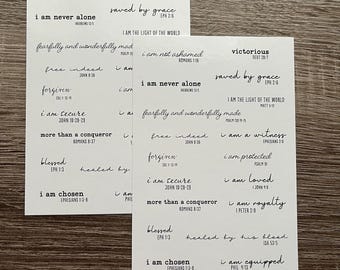 i am never alone
HEBREWS 13:5
saved by grace
EPH 2:8
I AM THE LIGHT OF THE WORLD
fearfully and wonderfully made
PSALM 139:14
free indeed
JOHN 8:36
forgiven
i am secure
JOHN 10:28-29
more than a conqueror
ROMANS 8:37
blessed
EPH 1:3
healed by
i am chosen
EPHESIANS 1:3-8
i am not ashamed
ROMANS 1:16
victorious
DEUT 20:7
saved by grace
EPH 2:8
i am never alone
HEBREWS 13:5
I AM THE LIGHT OF THE WORLD
MATT 5:14
fearfully and wonderfully made
PSALM 139:14
free indeed
JOHN 8:36
i am a witness
EPHESIANS
forgiven
i am protected
PSALM 91
i am secure
JOHN 10:28-29
i am loved
I JOHN 4:9
more than a conqueror
ROMANS 8:37
i am royalty
I PETER 2:9
blessed
EPH 1:3
healed by his blood
ISA 53:5
i am chosen
EPHESIANS 1:3-8
i am equipped
PHIL 4:13